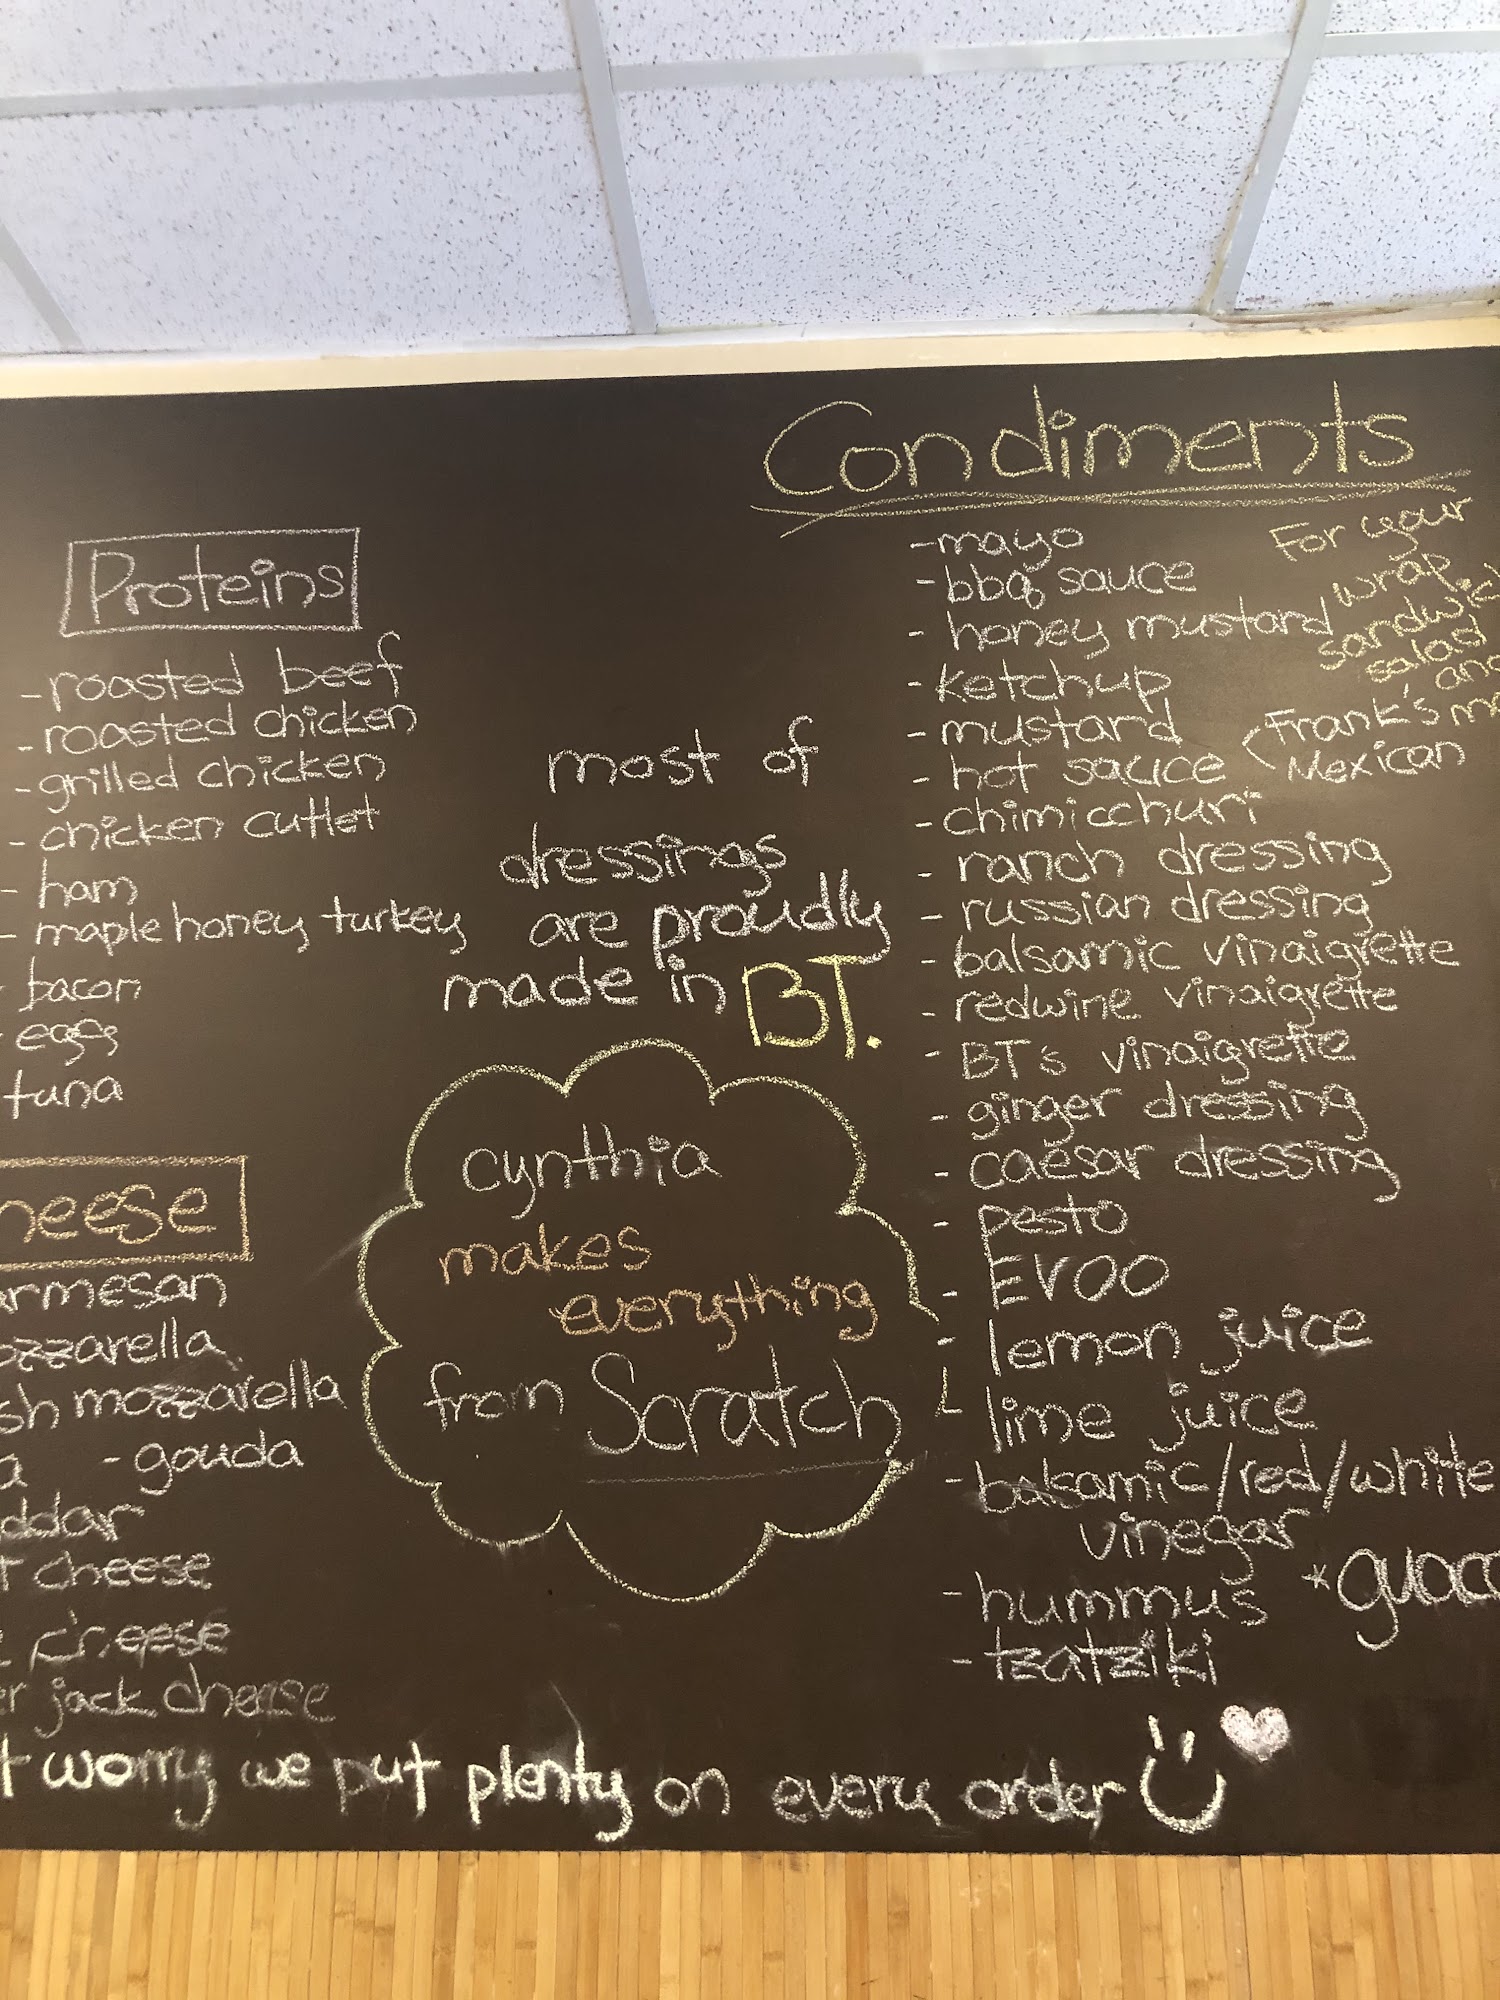 Proteins
- roasted beef
- roasted chicken
- grilled chicken
- chicken cutlet
- ham
- maple honey turkey
- bacon
- eggs
- tuna
heese
armesan
ozzarella
sh mozzarella
a - gouda
ddar
t cheese
cheese
er jack cheese
most of
dressings
are proudly
made in BT.
cynthia
makes
everything
from Scratch
Condiments
- mayo
- bbq sauce
- honey mustard
- ketchup
- mustard
- hot sauce < Frank's
Mexican
- chimicchuri
- ranch dressing
- russian dressing
- balsamic vinaigrette
- redwine vinaigrette
- BT's vinaigrette
- ginger dressing
- caesar dressing
- pesto
- EVOO
- lemon juice
- lime juice
- balsamic/red/white
vinegar
- hummus
- tzatziki
For your
wrap
sandwich
salad
and
*guaca
t worry we put plenty on every order